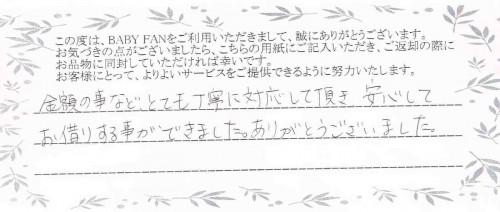 この度は、BABY FANをご利用いただきまして、誠にありがとうございます。
お気づきの点がございましたら、こちらの用紙にご記入いただき、ご返却の際に
お品物に同封していただければ幸いです。
お客様にとって、よりよいサービスをご提供できるように努力いたします。
金額の事など、とても丁寧に対応して頂き 安心して
お借りする事ができました。ありがとうございました。